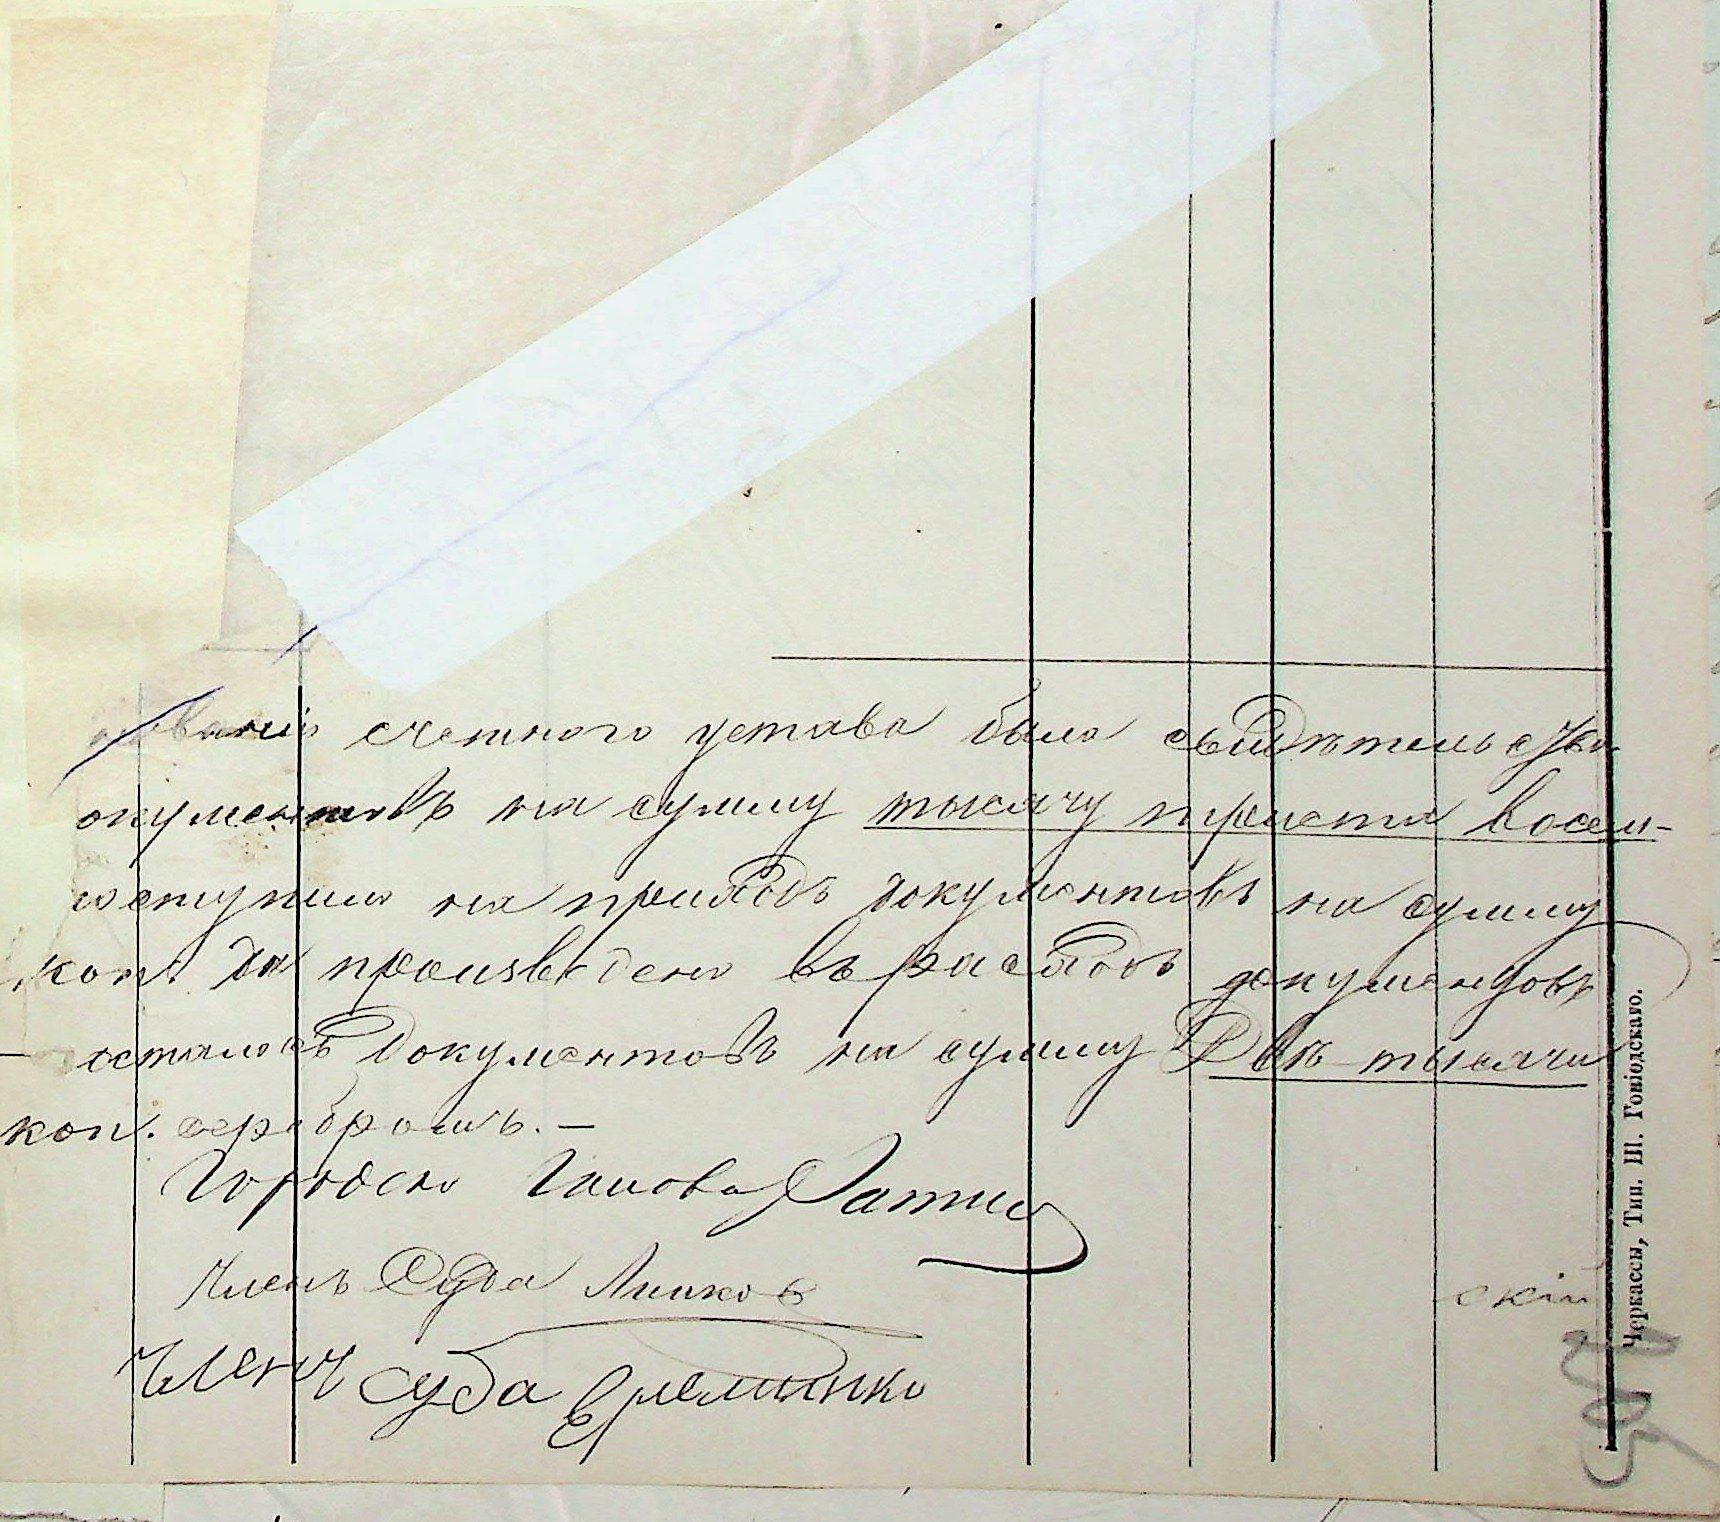 ованіи счетнаго устава было свидѣтельство
окументовъ на сумму тысячу триста восем-
поступило на приходъ документовъ на сумму
коп. да произведено въ расходъ документовъ
осталось документовъ на сумму Двѣ тысячи
коп. серебромъ. —
Городско Голова
Членъ Суда
Членъ Суда Еременко
скій
Черкассы, Тип. Ш. Говіодскаго.